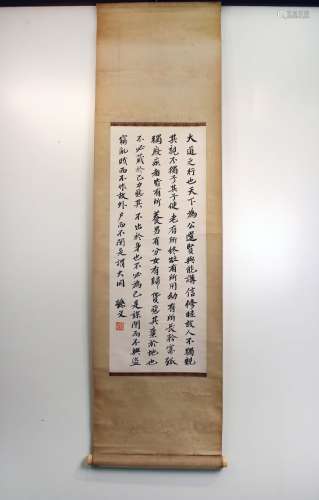 大道之行也天下為公選賢與能講信修睦故人不獨親
其親不獨子其子使老有所終壯有所用幼有所長矜寡孤
獨廢疾者皆有所養男有分女有歸貨惡其棄於地也
不必藏於己力惡其不出於身也不必為己是謀閉而不興盜
竊亂賊而不作故外戶而不閉是謂大同 孫文